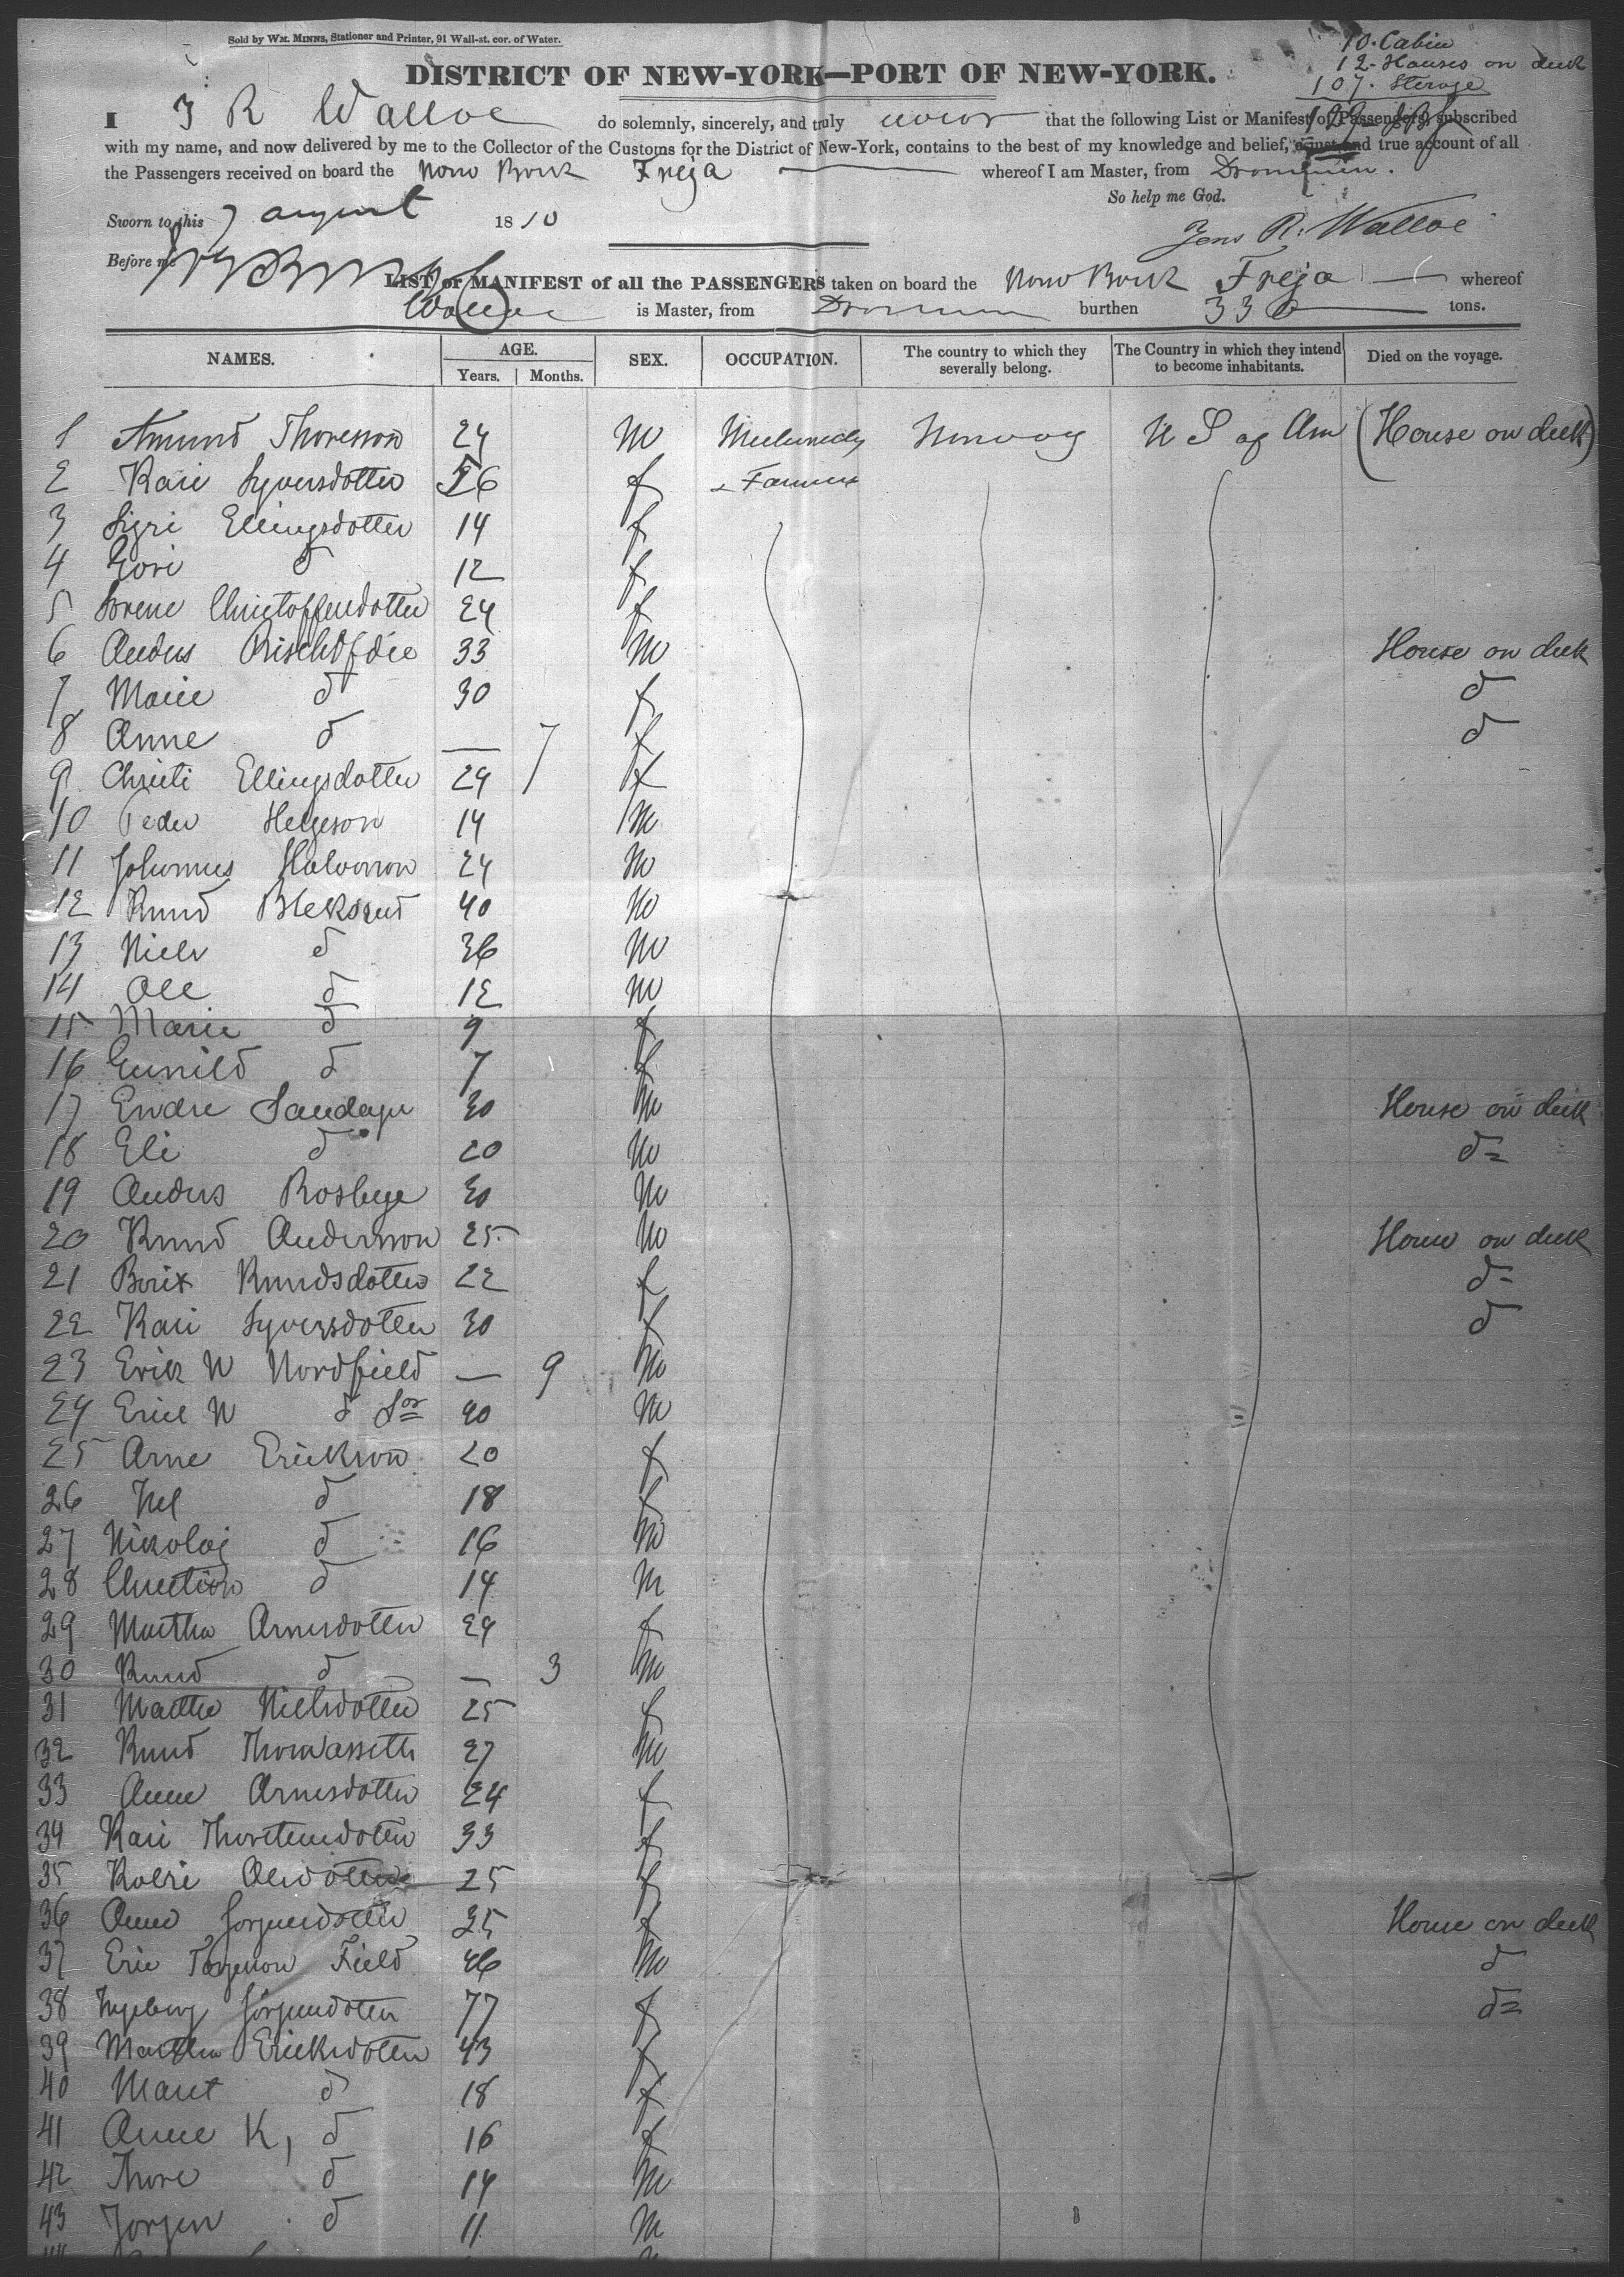 Sold by WM. MINNS, Stationer and Printer, 91 Wall-st. cor. of Water.
10. Cabin
12. Houses on deck
107. Sterage
DISTRICT OF NEW-YORK—PORT OF NEW-YORK.
I J R Walloe do solemnly, sincerely, and truly swear that the following List or Manifest of Passengers, subscribed
with my name, and now delivered by me to the Collector of the Customs for the District of New-York, contains to the best of my knowledge and belief, a just and true account of all
the Passengers received on board the Norw Bark Freja whereof I am Master, from Drammen.
So help me God.
Sworn to this 7 august 18
Jens R. Walloe
Before me
LIST or MANIFEST of all the PASSENGERS taken on board the Norw Bark Freja whereof
Walloe is Master, from Drammen burthen 336 tons.
NAMES. AGE. Years. Months. SEX. OCCUPATION. The country to which they severally belong. The Country in which they intend to become inhabitants. Died on the voyage.
1 Amund Thoresson 24 M Norway U S of Am (House on deck)
2 Kari Syversdotter 26 f Farmers
3 Sigri Ellingsdotter 14 f
4 Gori d 12 f
5 Sorene Christoffersdotter 24 f
6 Anders 33 M House on deck
7 Marie d 30 f d
8 Anne d — 7 f d
9 Christi Ellingsdotter 24 f
10 Peder Helgeson 14 M
11 Johannes Halvorson 24 M
12 Knud Bleksrud 40 M
13 Niels d 36 M
14 Ole d 12 M
15 Marie d 9 f
16 Gunild d 7 f
17 Endre 30 M House on deck
18 Eli d 20 M d
19 Anders Rosbye 30 M
20 Knud Anderson 25 M House on deck
21 Berit Knudsdotter 22 f d
22 Kari Syversdotter 30 f d
23 Erik N Nordfield — 9 M
24 Erick N d Sor 40 M
25 Arne Erickson 20 f
26 d 18 f
27 Nikolaj d 16 M
28 Christian d 14 M
29 Martha Arnesdotter 24 f
30 Knud d — 3 M
31 Marthe Nielsdotter 25 f
32 Knud Thomasseth 27 M
33 Anne Arnesdotter 24 f
34 Kari Thorstensdotter 33 f
35 Olesdotter 25 f
36 Anne Jorgensdotter 35 f House on deck
37 Eric Field 46 M d
38 Ingeborg Jorgensdotter 77 f d
39 Martha Ericksdotter 43 f
40 Marit d 18 f
41 Anne K, d 16 f
42 Thore d 14 M
43 Jorgen d 11 M